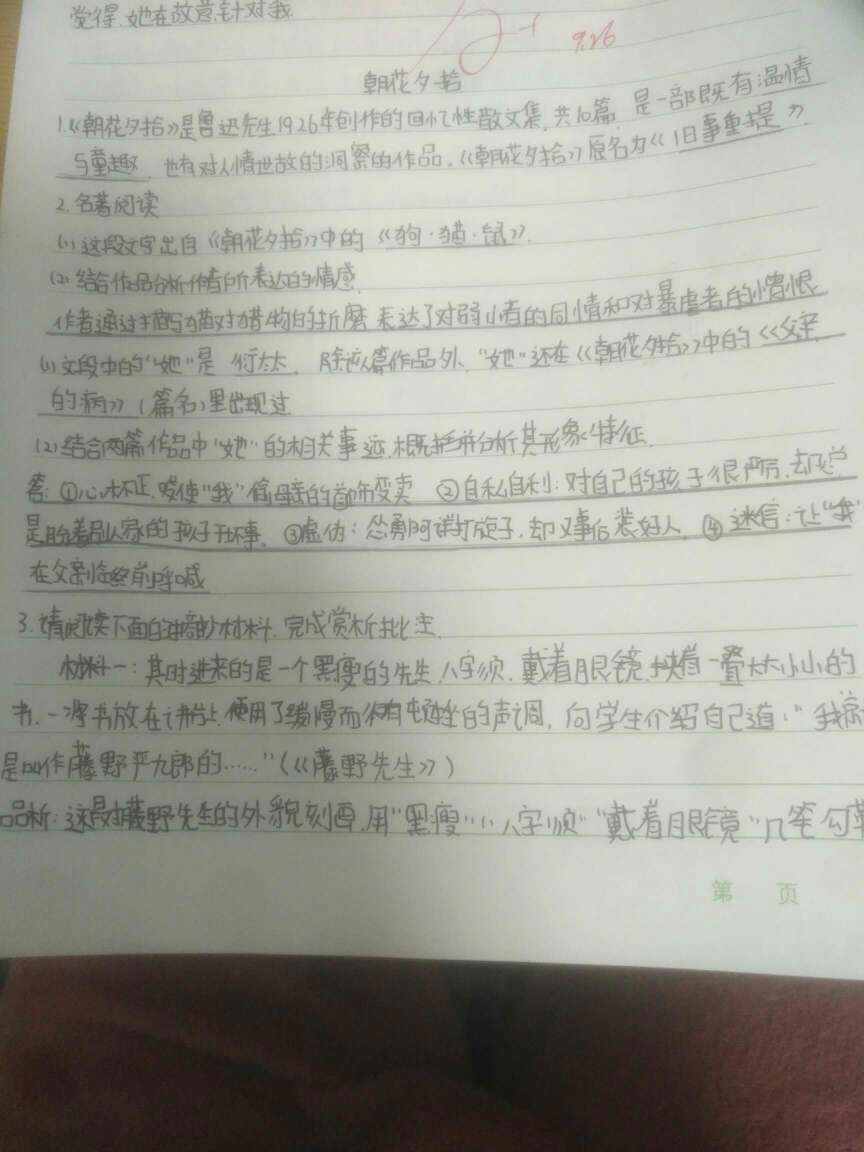 觉得,她在故意针对我.
9.26
朝花夕拾
1.《朝花夕拾》是鲁迅先生1926年创作的回忆性散文集,共10篇,是一部既有温情
与童趣,也有对人情世故的洞察的作品.《朝花夕拾》原名为《旧事重提》.
2.名著阅读
(1)这段文字出自《朝花夕拾》中的《狗·猫·鼠》.
(2)结合作品分析作者所表达的情感.
作者通过描写猫对猎物的折磨,表达了对弱小者的同情和对暴虐者的憎恨
(1)文段中的"她"是 衍太太. 除该篇作品外,"她"还在《朝花夕拾》中的《父亲
的病》(篇名)里出现过
(2)结合两篇作品中"她"的相关事迹,概括并分析其形象特征.
答:①心术不正,唆使"我"偷母亲的首饰变卖 ②自私自利:对自己的孩子很严厉,却总
是盼着别人家的孩子干坏事. ③虚伪:怂勇阿祥打旋子,却又事后装好人.④迷信:让"我"
在父亲临终前呼喊
3.请阅读下面的材料,完成赏析批注.
材料一:其时进来的是一个黑瘦的先生,八字须,戴着眼镜,挟着一叠大大小小的
书.一将书放在讲台上,便用了缓慢而很有顿挫的声调,向学生介绍自己道:"我就
是叫作藤野严九郎的……"(《藤野先生》)
品析:这是对藤野先生的外貌刻画,用"黑瘦""八字须""戴着眼镜"几笔勾
第 页